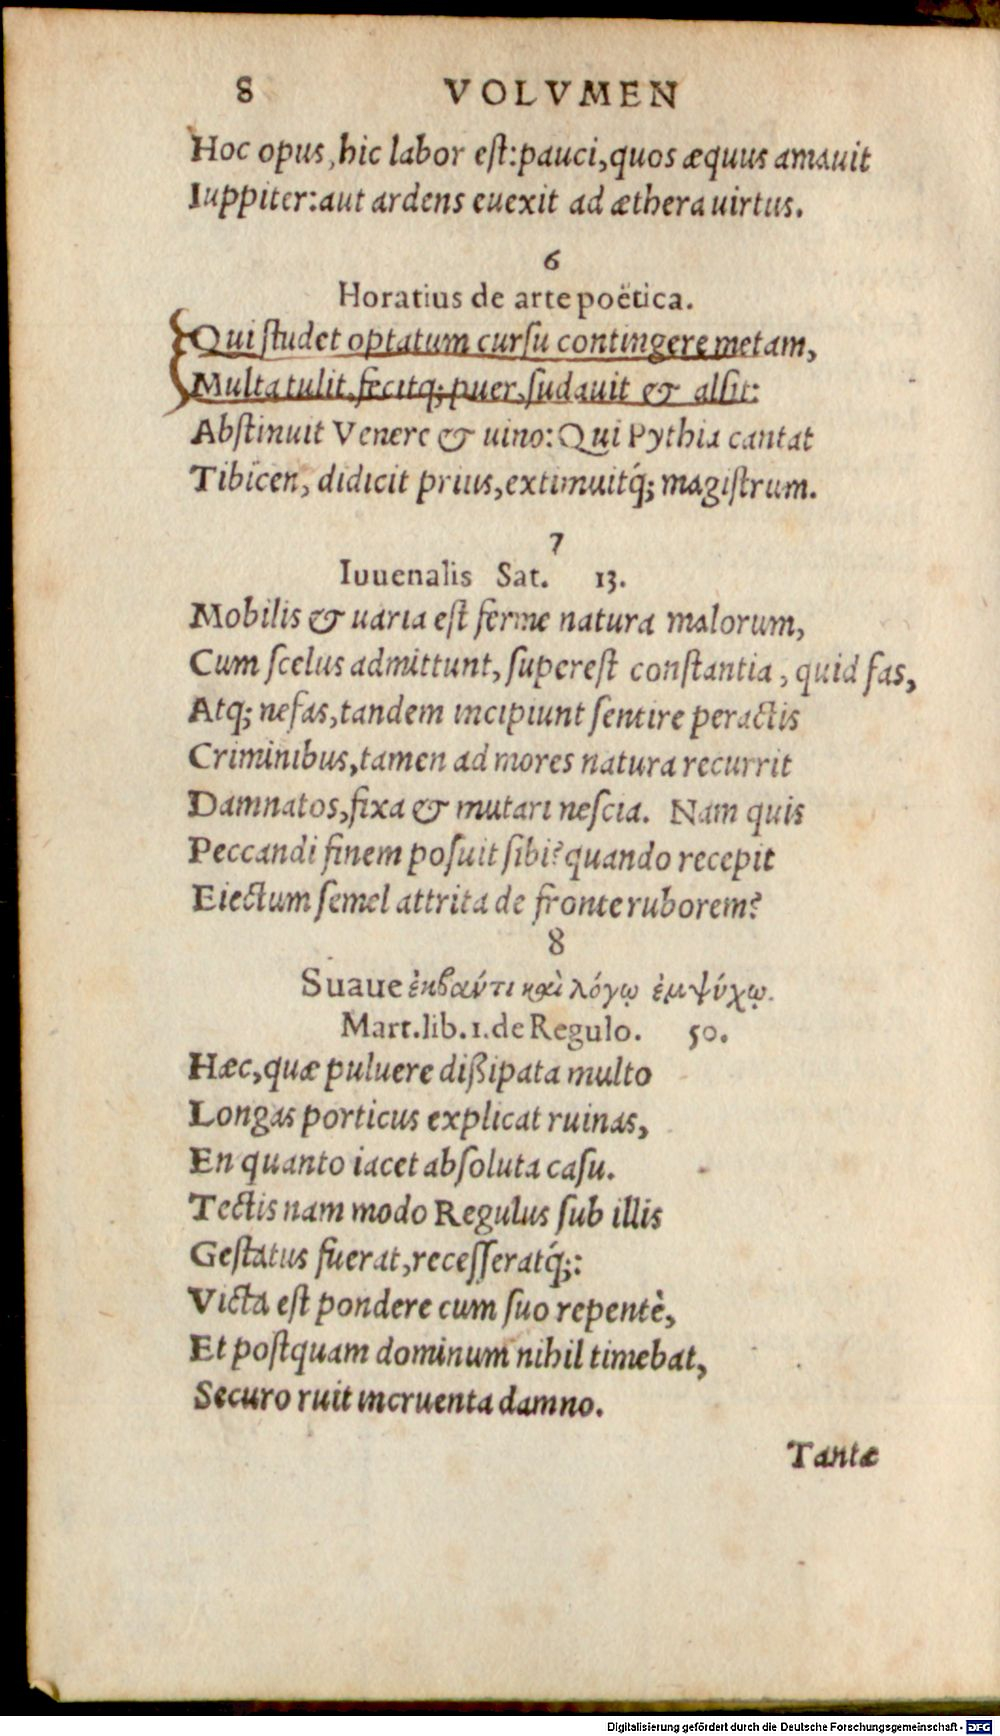 8 VOLVMEN
Hoc opus, hic labor est: pauci, quos æquus amauit
Iuppiter: aut ardens euexit ad æthera uirtus.
6
Horatius de arte poëtica.
Qui studet optatum cursu contingere metam,
Multa tulit, fecitq; puer, sudauit & alsit:
Abstinuit Venere & uino: Qui Pythia cantat
Tibicen, didicit prius, extimuitq́; magistrum.
7
Iuuenalis Sat. 13.
Mobilis & uaria est ferme natura malorum,
Cum scelus admittunt, superest constantia, quid fas,
Atq; nefas, tandem incipiunt sentire peractis
Criminibus, tamen ad mores natura recurrit
Damnatos, fixa & mutari nescia. Nam quis
Peccandi finem posuit sibi? quando recepit
Eiectum semel attrita de fronte ruborem?
8
Suaue ἐκβαύτι καὶ λόγῳ ἐμψύχῳ.
Mart. lib. 1. de Regulo. 50.
Hæc, quæ puluere dißipata multo
Longas porticus explicat ruinas,
En quanto iacet absoluta casu.
Tectis nam modo Regulus sub illis
Gestatus fuerat, recesseratq́;:
Victa est pondere cum suo repentè,
Et postquam dominum nihil timebat,
Securo ruit incruenta damno.
Tantæ
Digitalisierung gefördert durch die Deutsche Forschungsgemeinschaft - DFG